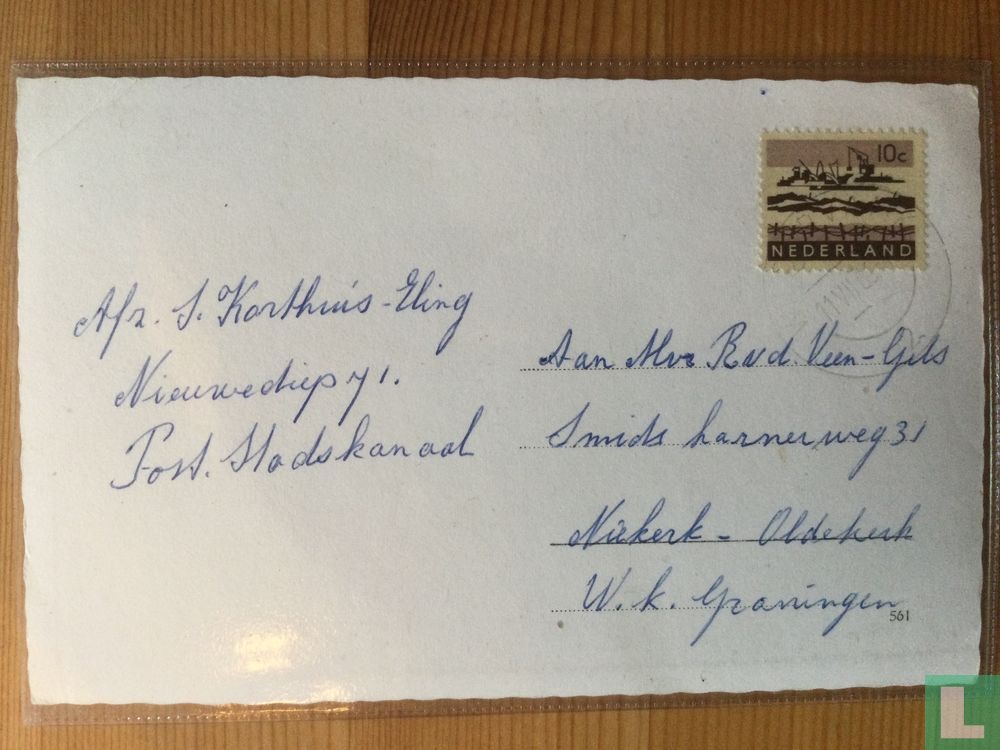 10c
NEDERLAND
Afz. S. Korthuis-Eling
Nieuwediep 71.
Post. Stadskanaal
Aan Mvr R v d. Veen-Gils
Smids harnerweg 31
Niekerk - Oldekerk
W. k. Groningen
561
L